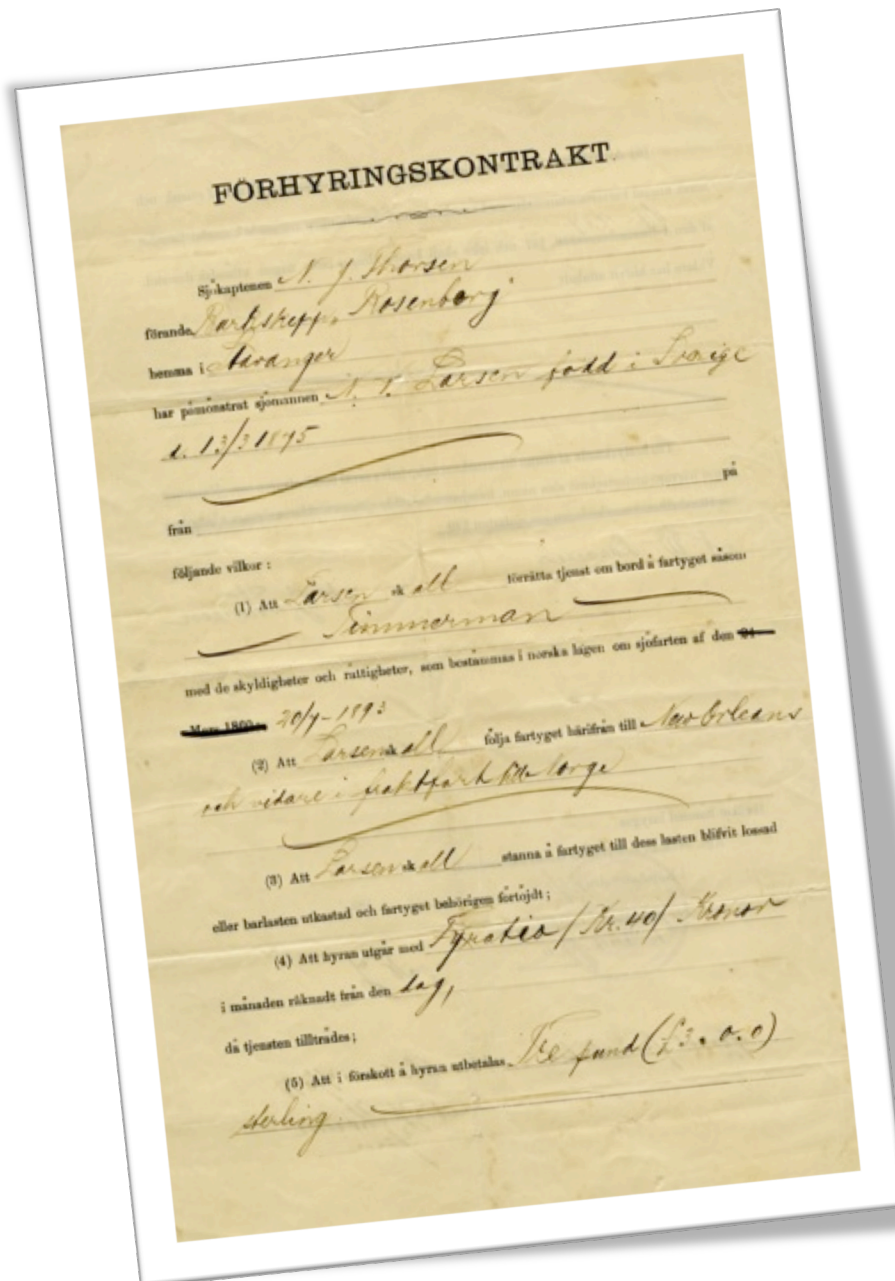 FÖRHYRINGSKONTRAKT.
Sjökaptenen N. J. Thorsen
förande Barkskepp. Rosenborg
hemma i Stavanger
har påmönstrat sjömannen N. Larsen född i Sverige
d. 13/3 1875
från på
följande vilkor :
(1) Att Larsen skall förrätta tjenst om bord å fartyget såsom
Timmerman
med de skyldigheter och rättigheter, som bestämmas i norska lagen om sjöfarten af den 24
Mars 1860 20/7-1893
(2) Att Larsen skall följa fartyget härifrån till New Orleans
och vidare i fraktfart Norge
(3) Att Larsen skall stanna å fartyget till dess lasten blifvit lossad
eller barlasten utkastad och fartyget behörigen förtöjdt ;
(4) Att hyran utgår med Fyratio / Kr. 40/ Kronor
i månaden räknadt från den dag,
då tjensten tillträdes ;
(5) Att i förskott å hyran utbetalas Tre pund (£3. 0. 0)
sterling.